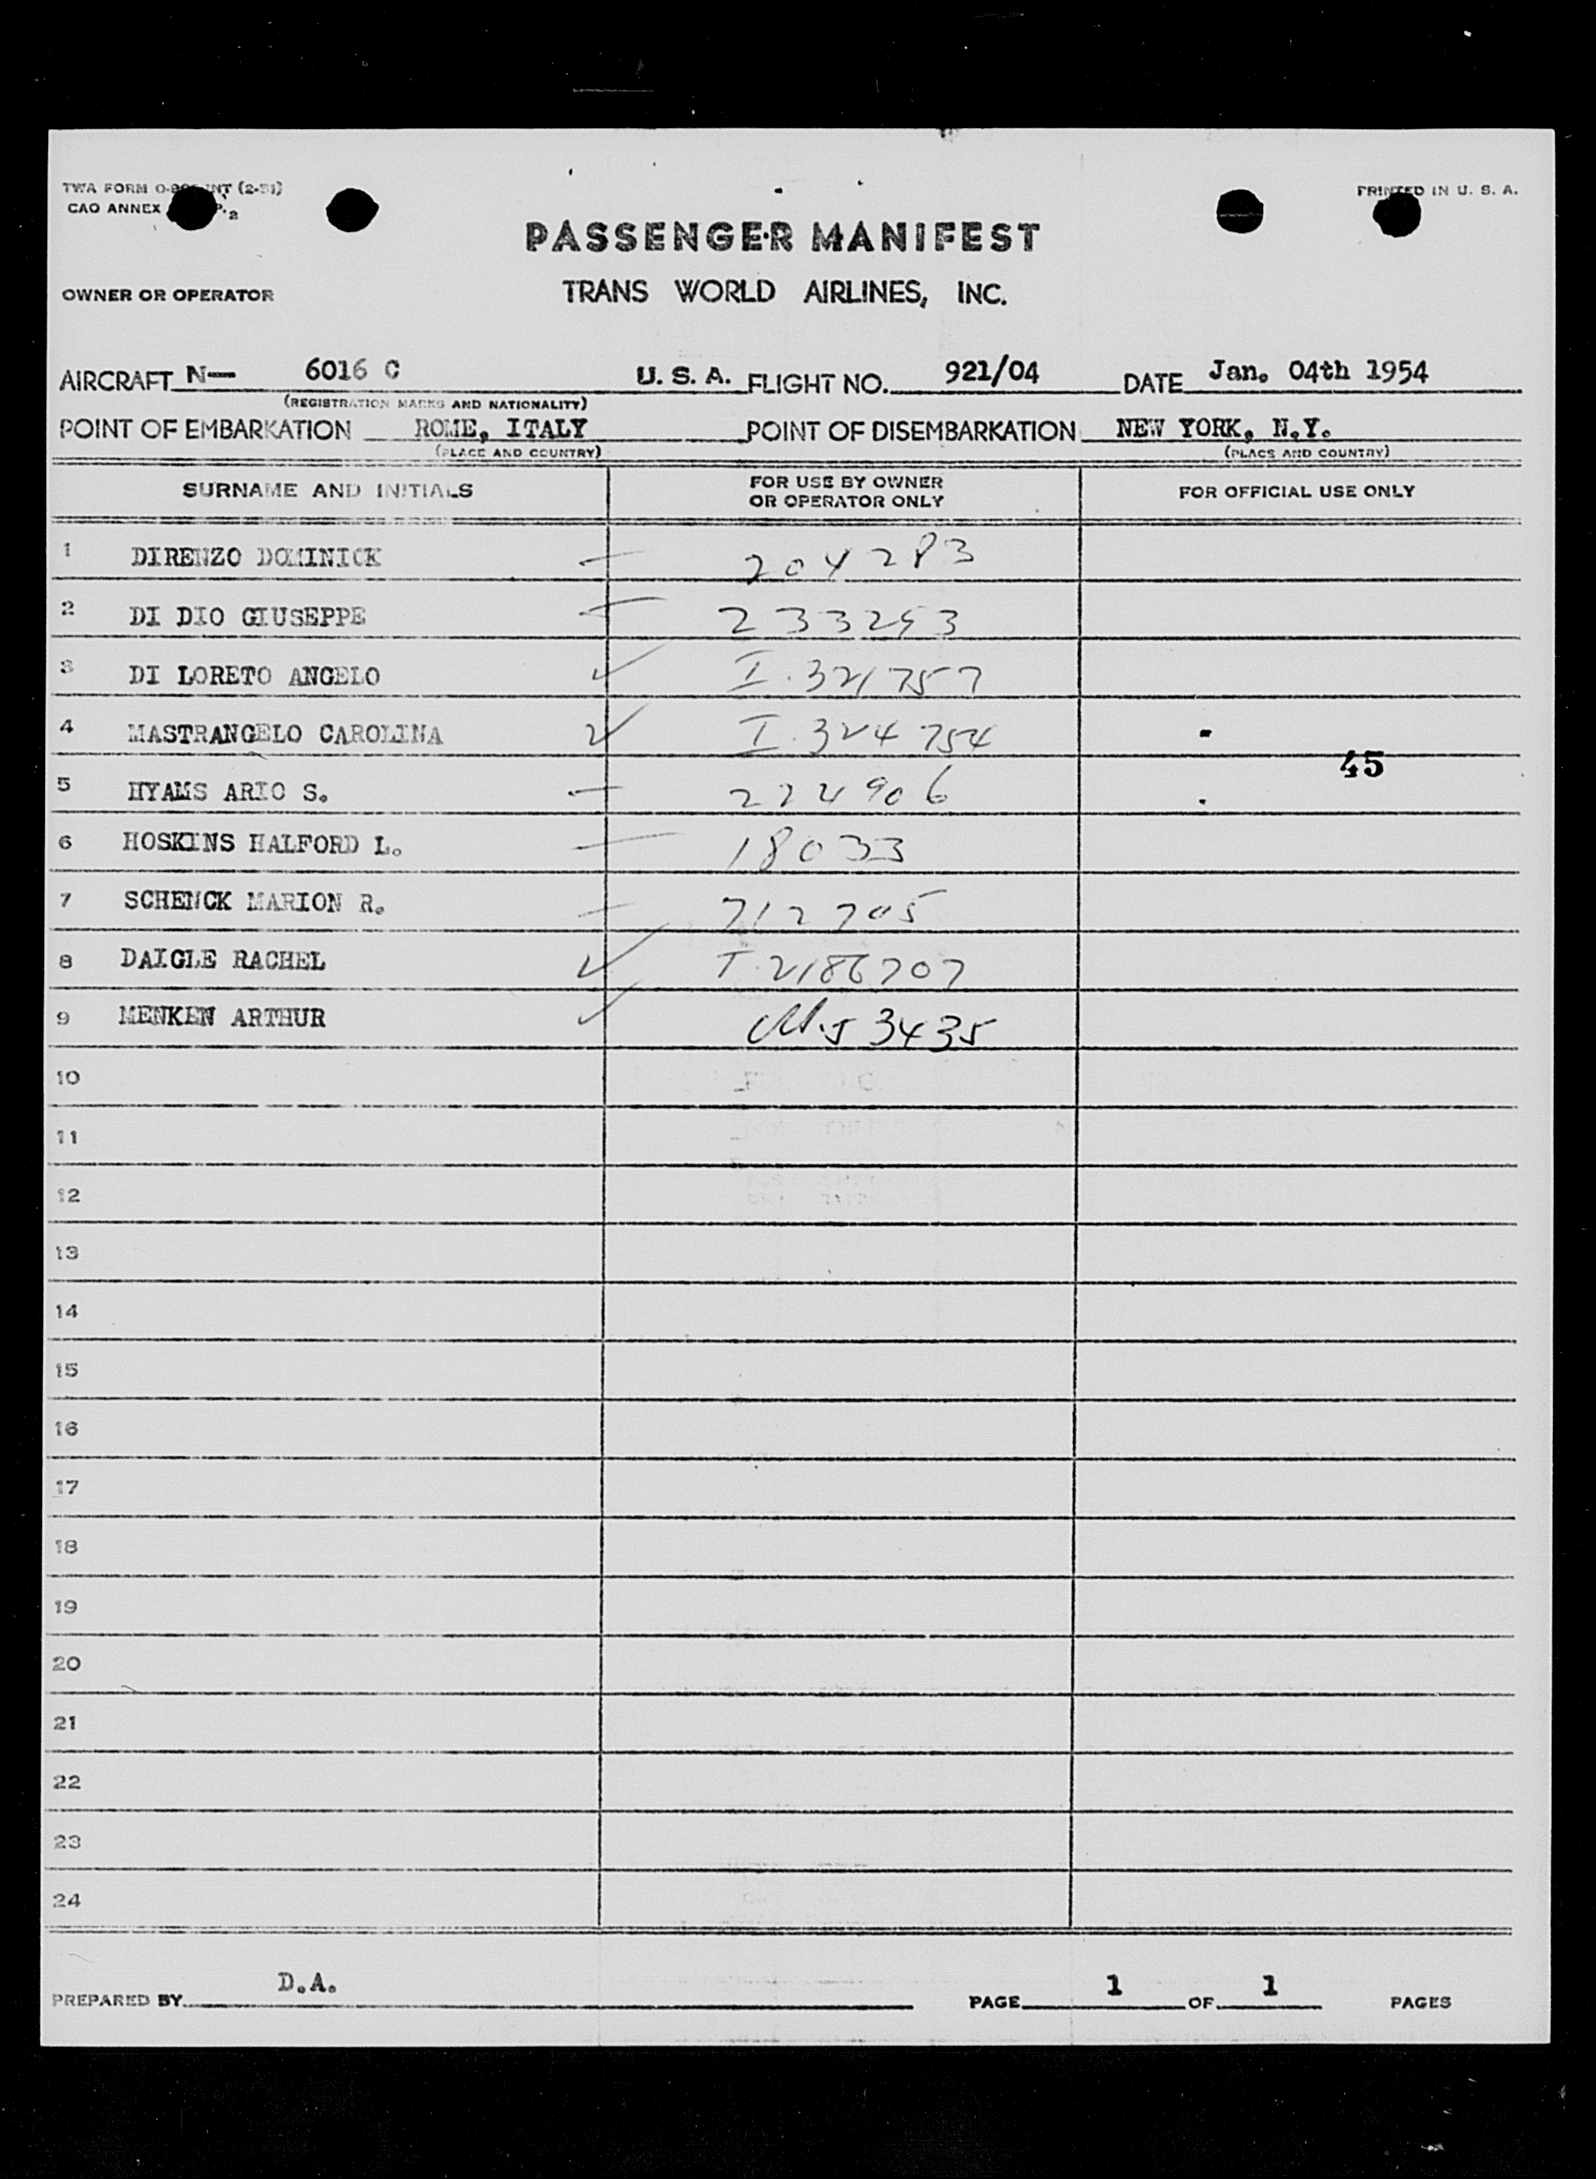 TWA FORM O- INT (2-51)
PRINTED IN U. S. A.
CAO ANNEX P. 2
PASSENGER MANIFEST
OWNER OR OPERATOR TRANS WORLD AIRLINES, INC.
AIRCRAFT N— 6016 C U. S. A. FLIGHT NO. 921/04 DATE Jan. 04th 1954
(REGISTRATION MARKS AND NATIONALITY)
POINT OF EMBARKATION ROME, ITALY POINT OF DISEMBARKATION NEW YORK, N.Y.
(PLACE AND COUNTRY) (PLACE AND COUNTRY)
SURNAME AND INITIALS FOR USE BY OWNER OR OPERATOR ONLY FOR OFFICIAL USE ONLY
1 DIRENZO DOMINICK — 204283
2 DI DIO GIUSEPPE — 233253
3 DI LORETO ANGELO ✓ I.321757
4 MASTRANGELO CAROLINA ✓ I.324754
45
5 HYAMS ARIO S. — 224906
6 HOSKINS HALFORD L. — 18033
7 SCHENCK MARION R. — 712705
8 DAIGLE RACHEL ✓ I.2186707
9 MENKEN ARTHUR ✓ 53435
10
11
12
13
14
15
16
17
18
19
20
21
22
23
24
PREPARED BY D.A. PAGE 1 OF 1 PAGES